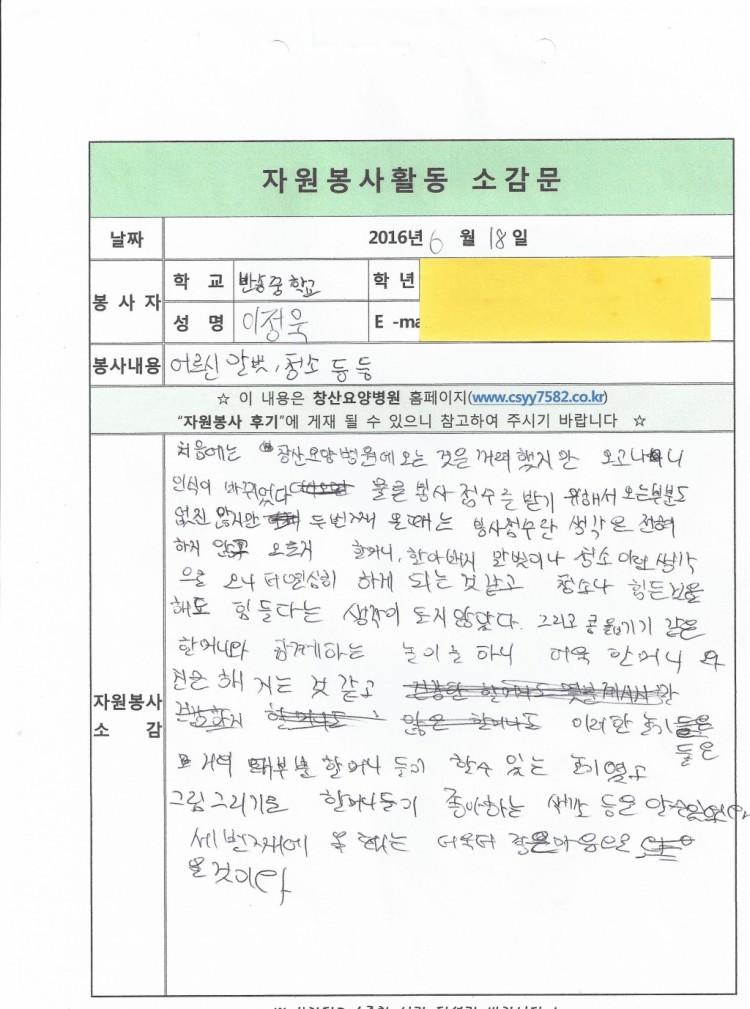 자원봉사활동 소감문
날짜 2016년 6 월 18일
봉 사 자 학 교 반송중학교 학 년
성 명 이정욱 E -ma
봉사내용 어르신 말벗, 청소 등등
☆ 이 내용은 창산요양병원 홈페이지(www.csyy7582.co.kr)
“자원봉사 후기”에 게재 될 수 있으니 참고하여 주시기 바랍니다 ☆
자원봉사
소 감
처음에는 창산요양병원에 오는 것을 꺼려했지만 오고나니
인식이 바뀌었다 물론 봉사 점수를 받기 위해서 오는부분도
없진 않지만 두번째 올때는 봉사점수란 생각은 전혀
하지 않고 오로지 할머니, 할아버지 말벗이나 청소 이런 생각
으로 오니 더 열심히 하게 되는것 같고 청소나 힘든것을
해도 힘들다는 생각이 도지않았다. 그리고 콩 옮기기 같은
할머니와 함께하는 놀이를 하니 더욱 할머니와
친은해 지는 것 같고
이러한 놀기들은
들은
거의 대부분 할머니들이 할수 있는 놀기였고
그림그리기로 할머니들이 좋아하는 색깔 등을 알수있었다
세번째에 올 때는 더욱더 마음으로
올것이다